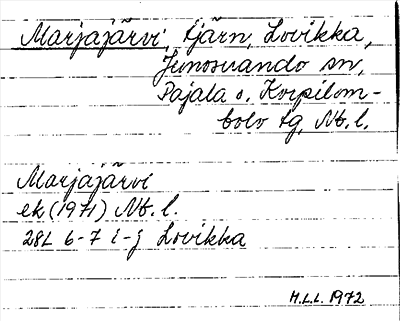 Marjajärvi, tjärn, Lovikka,
Junosuando sn,
Pajala o. Korpilom-
bolo tg, Nb. l.
Marjajärvi
ek (1971) Nb. l.
28L 6-7 i-j Lovikka
H.L.L. 1972